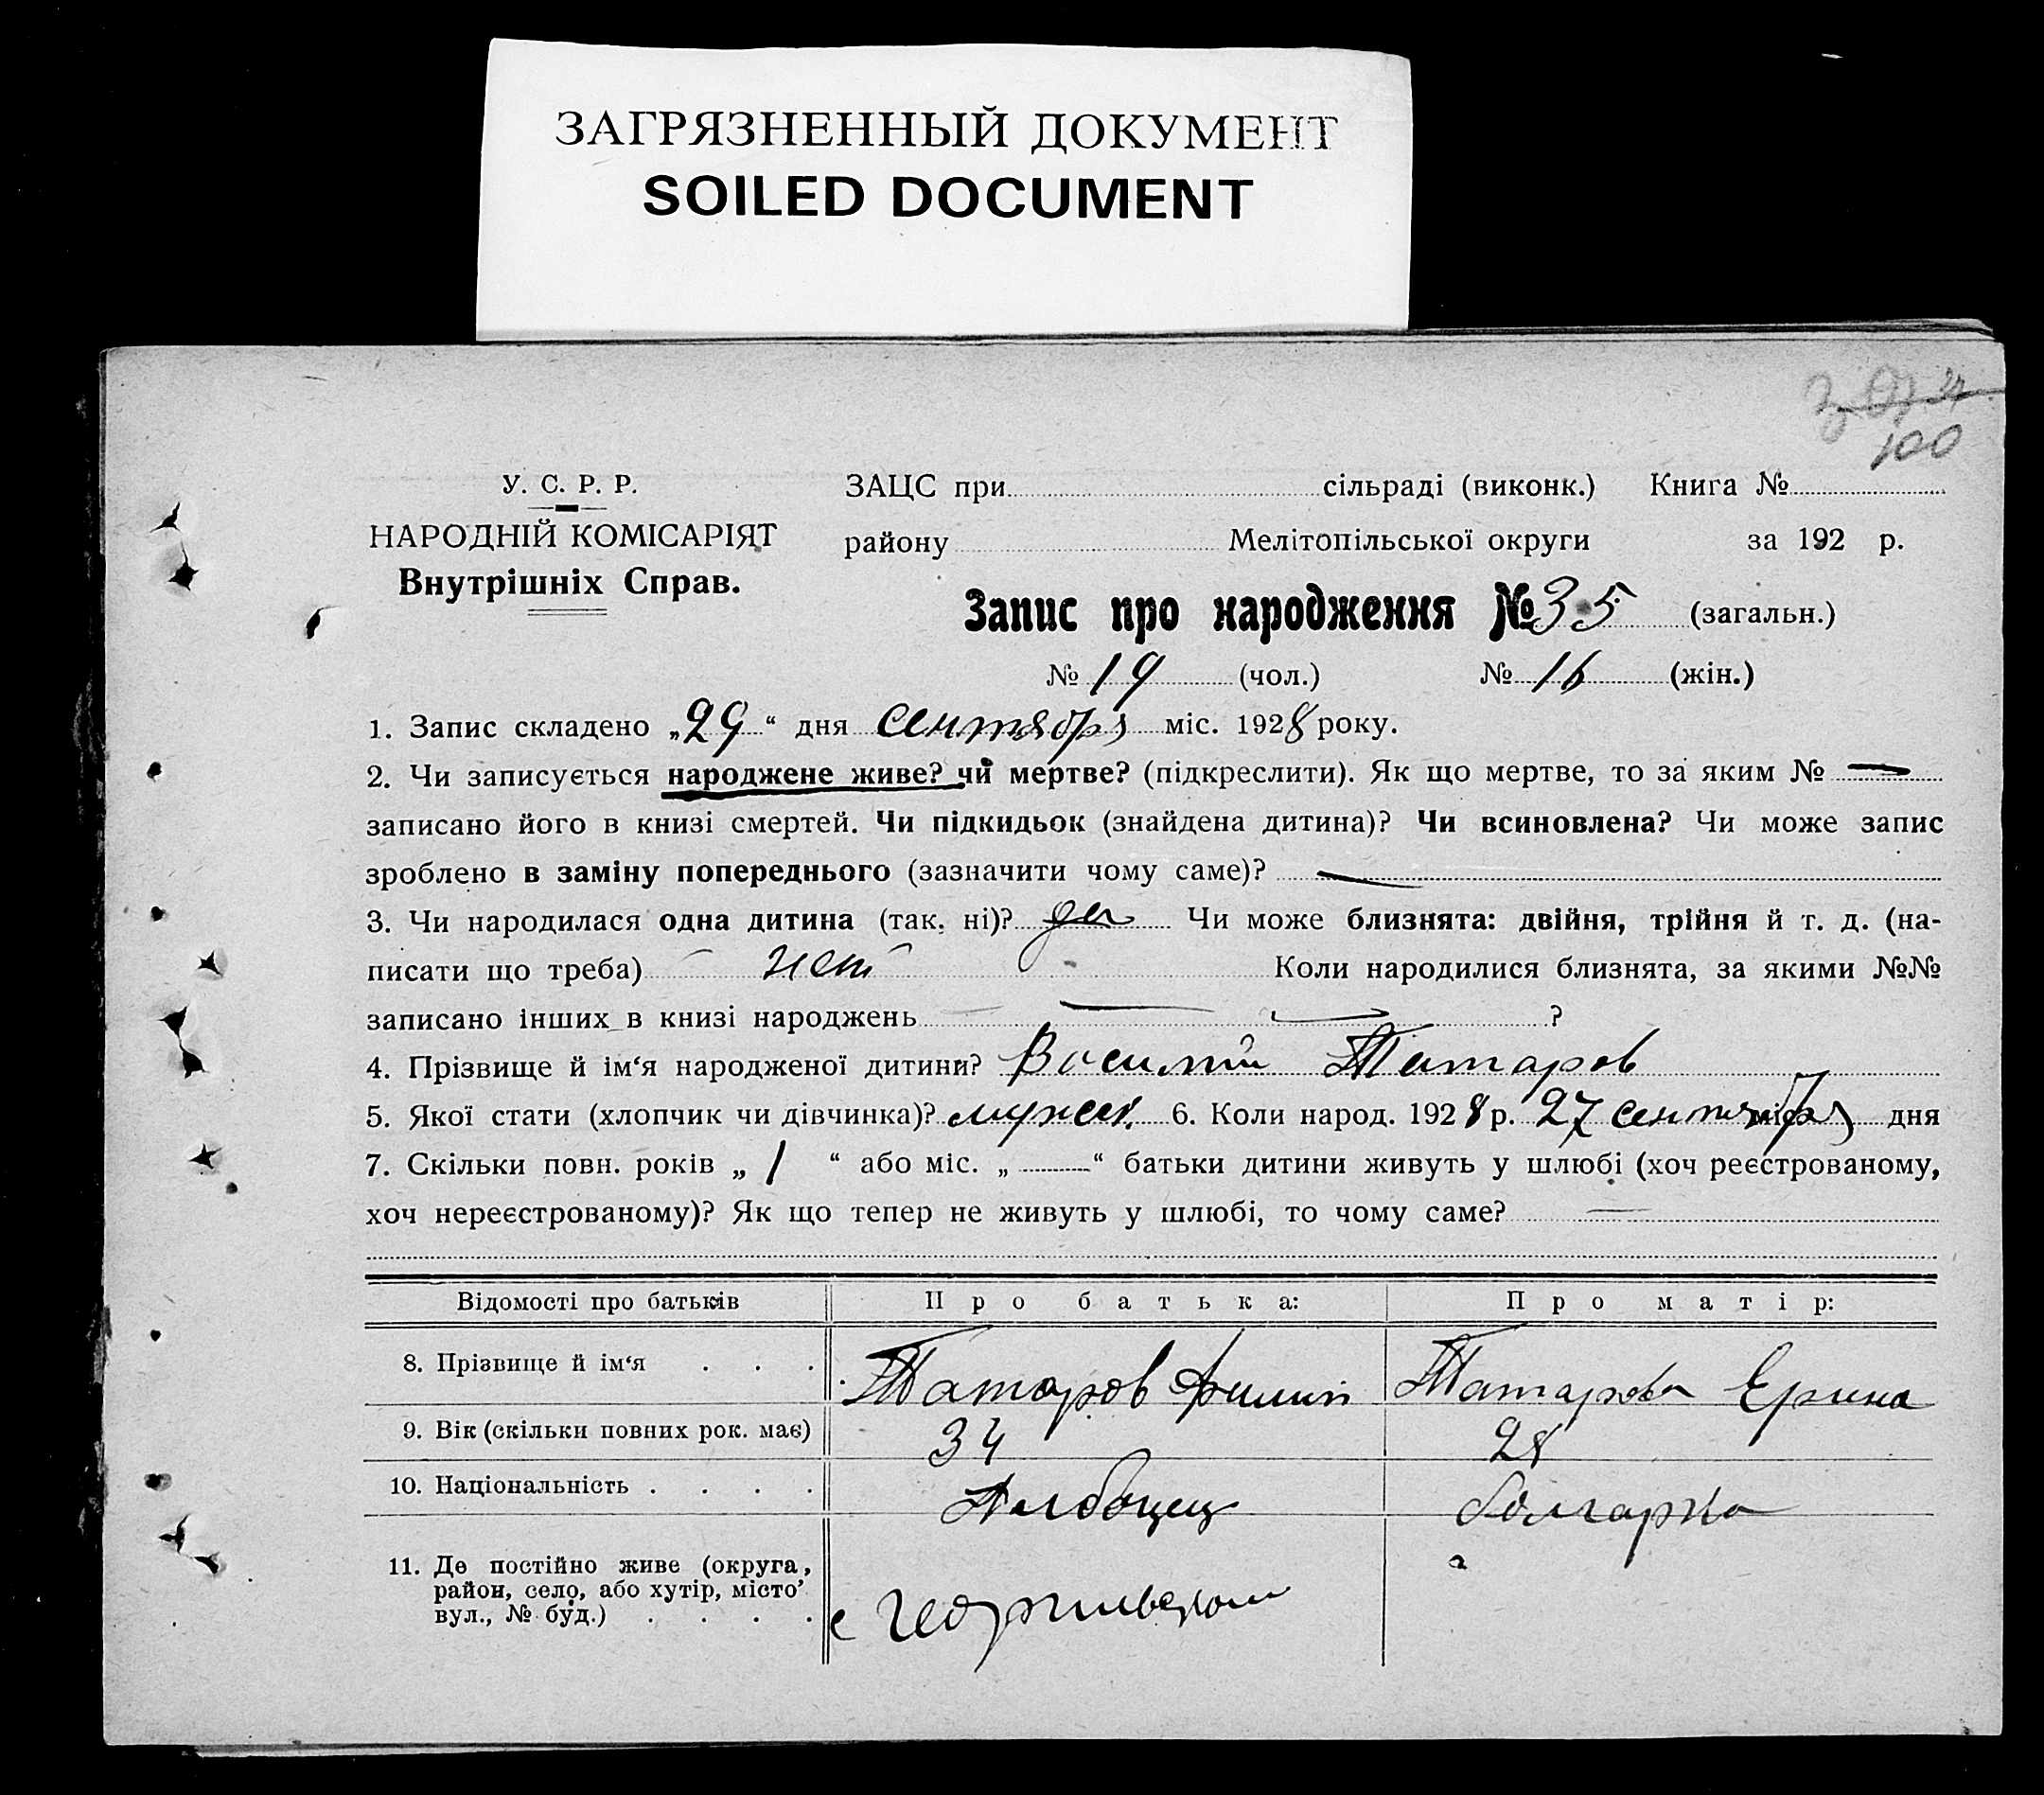 ЗАГРЯЗНЕННЫЙ ДОКУМЕНТ
SOILED DOCUMENT
100
У. С. Р. Р.
НАРОДНІЙ КОМІСАРІЯТ
Внутрішніх Справ.
ЗАЦС при сільраді (виконк.) Книга №
району Мелітопільської округи за 192 р.
Запис про народження № 35 (загальн.)
№ 19 (чол.) № 16 (жін.)
1. Запис складено „29“ дня сентября міс. 1928 року.
2. Чи записується народжене живе? чи мертве? (підкреслити). Як що мертве, то за яким № —
записано його в книзі смертей. Чи підкидьок (знайдена дитина)? Чи всиновлена? Чи може запис
зроблено в заміну попереднього (зазначити чому саме)? —
3. Чи народилася одна дитина (так, ні)? да Чи може близнята: двійня, трійня й т. д. (на-
писати що треба) нет Коли народилися близнята, за якими №№
записано інших в книзі народжень — ?
4. Прізвище й ім‘я народженої дитини? Василий Татаров
5. Якої стати (хлопчик чи дівчинка)? мужск. 6. Коли народ. 1928 р. 27 сентября міс. дня
7. Скільки повн. років „ 1 “ або міс. „ “ батьки дитини живуть у шлюбі (хоч реєстрованому,
хоч нереєстрованому)? Як що тепер не живуть у шлюбі, то чому саме? —
Відомості про батьків Про батька: Про матір:
8. Прізвище й ім‘я . . . Татаров Филип Татарова Ерина
9. Вік (скільки повних рок. має) 34 28
10. Національність . . . . Албанец болгарка
11. Де постійно живе (округа,
район, село, або хутір, місто,
вул., № буд.) . . . . с Георгиевском